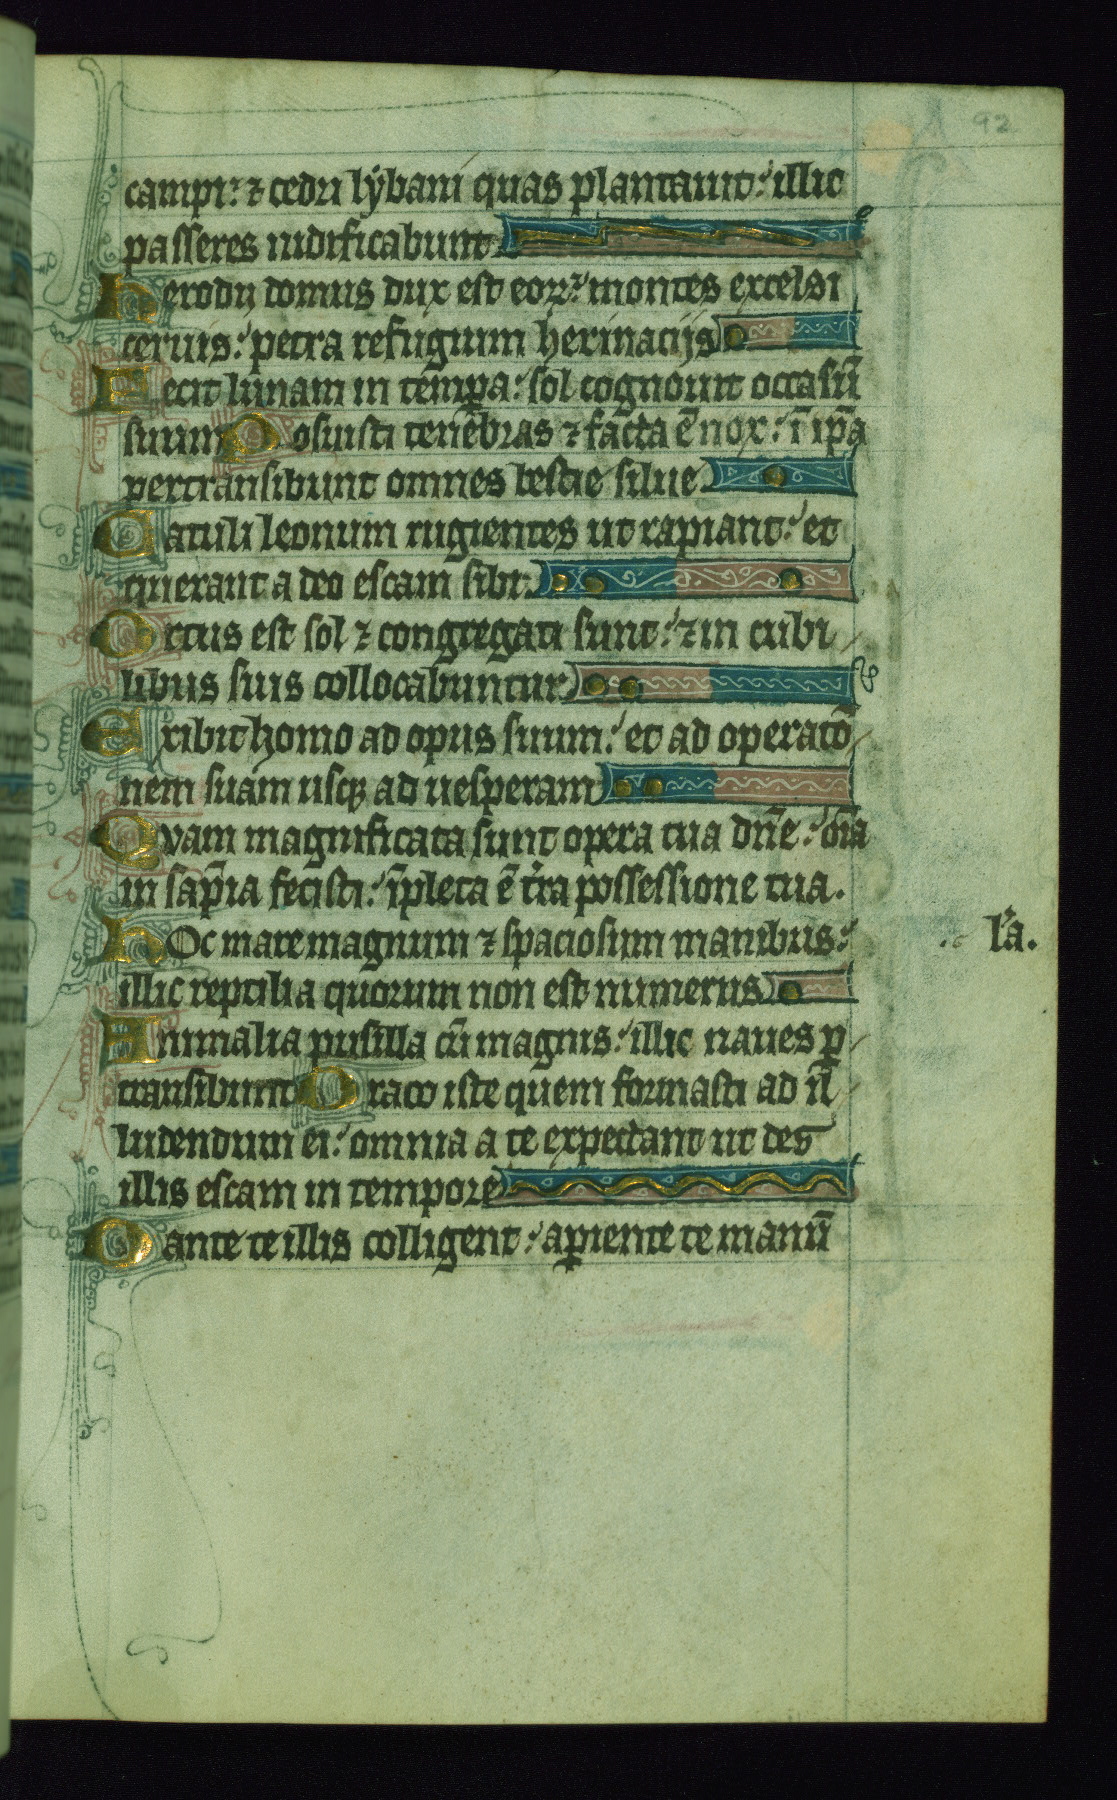 92
campi: ⁊ cedri lẏbani quas plantauit: illic
passeres nidificabunt.
herodij domus dux est eoꝝ: montes excelsi
ceruis: petra refugium herinacijs
Fecit lunam in tempa: sol cognouit occasū
suum Posuisti tenebras ⁊ facta ē nox: ī ip̄a
pertransibunt omnes bestie silue
Catuli leonum rugientes ut rapiant: et
querant a deo escam sibi.
Ortus est sol ⁊ congregati sunt: ⁊ in cubi
libus suis collocabuntur
Exibit homo ad opus suum: et ad operatō
nem suam usqꝫ ad uesperam
Qvam magnificata sunt opera tua dn̄e: oīa
in sap̄ia fecisti: īpleta ē t̄ra possessione tua.
hOc mare magnum ⁊ spaciosum manibus:
la.
illic reptilia quorum non est numerus
Animalia pusilla cū magnis: illic naues ꝑ
transibunt Draco iste quem formasti ad il̄
ludendum ei: omnia a te expectant ut des
illis escam in tempore
Dante te illis colligent: aperiente te manū